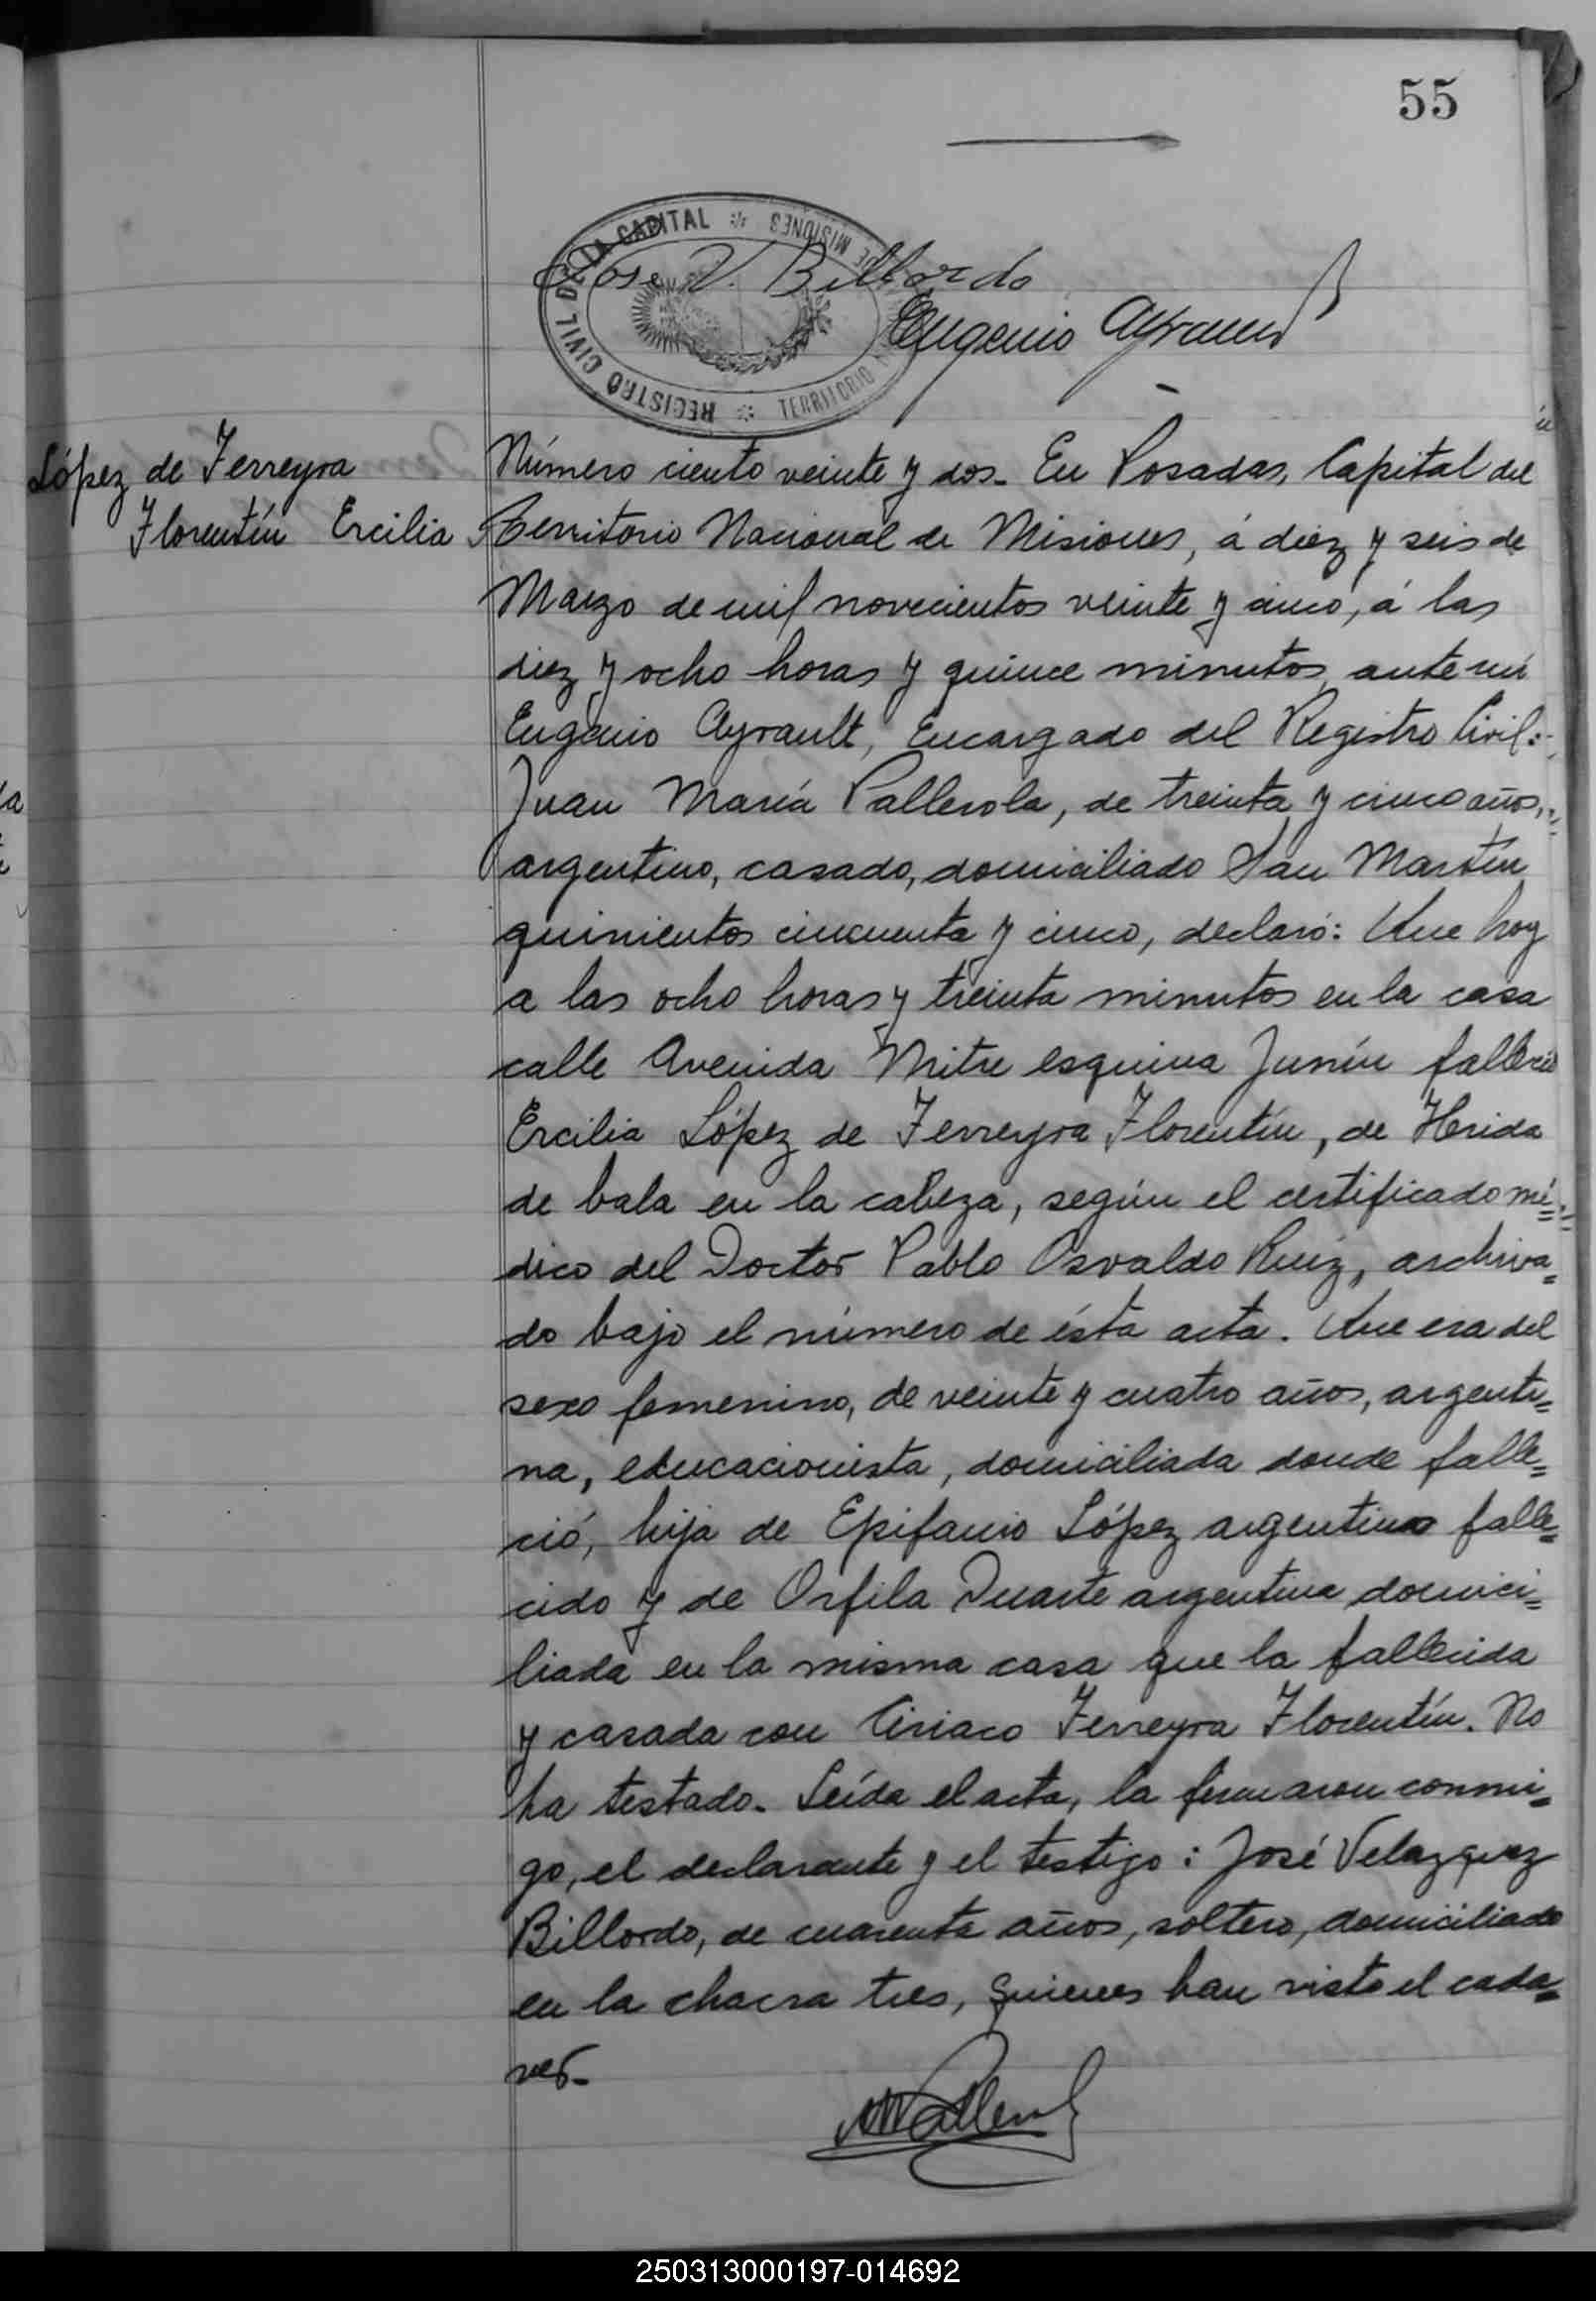 55
REGISTRO CIVIL DE LA CAPITAL * TERRITORIO DE MISIONES
Jose V. Billordo
Eugenio Ayrault
López de Ferreyra
Florentín Ercilia
Número ciento veinte y dos. En Posadas, Capital del
Territorio Nacional de Misiones, á diez y seis de
Marzo de mil novecientos veinte y cinco, á las
diez y ocho horas y quince minutos, ante mí
Eugenio Ayrault, Encargado del Registro Civil:-
Juan María Pallerola, de treinta y cinco años,
argentino, casado, domiciliado San Martín
quinientos cincuenta y cinco, declaró: Que hoy
a las ocho horas y treinta minutos en la casa
calle Avenida Mitre esquina Junín falleció
Ercilia López de Ferreyra Florentín, de Herida
de bala en la cabeza, según el certificado mé=
dico del Doctor Pablo Osvaldo Ruiz, archiva=
do bajo el número de ésta acta. Que era del
sexo femenino, de veinte y cuatro años, argenti=
na, educacionista, domiciliada donde falle=
ció, hija de Epifanio López argentino falle=
cido y de Orfila Duarte argentina domici=
liada en la misma casa que la fallecida
y casada con Ciriaco Ferreyra Florentín. No
ha testado. Leída el acta, la firmaron conmi=
go, el declarante y el testigo: José Velazquez
Billordo, de cuarenta años, soltero, domiciliado
en la chacra tres, quienes han visto el cada=
ver.
250313000197-014692